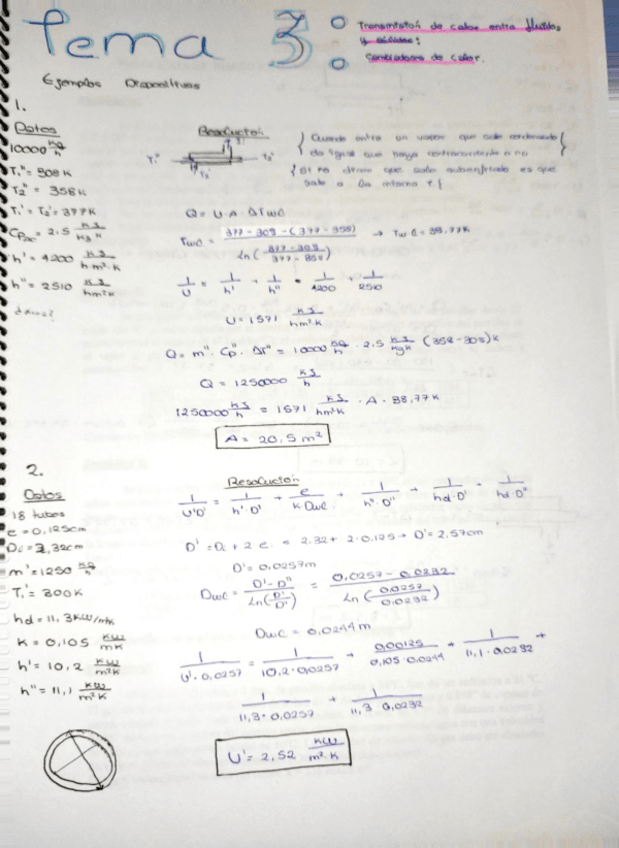 Tema 3
Transmisión de calor entre fluidos
y sólidos:
Cambiadores de calor.
Ejemplos Diapositivas
1.
Datos
10000 kg/h
T₁'' = 308K
T₂'' = 358K
T₁' = T₂' = 377K
Cpac = 2.5 KJ/Kg K
h' = 4200 KJ/h m² K
h'' = 2510 KJ/hm²K
Resolución
T₁'' T₂''
Cuando entra un vapor que sale condensado
da igual que haya contracorriente o no
Si no dicen que sale subenfriado es que
sale a la misma T
Q = U · A · ΔTwc
Twc = 377 - 308 - (377 - 358) / Ln(377 - 308 / 377 - 358) → Twc = 38.77K
1/U = 1/h' + 1/h'' = 1/4200 + 1/2510
U = 1571 KJ/hm²K
Q = m'' · Cp'' · ΔT'' = 10000 kg/h · 2.5 KJ/kgK (358 - 308)K
Q = 1250000 KJ/h
1250000 KJ/h = 1571 KJ/hm²K · A · 38,77K
A = 20,5 m²
2.
Datos
18 tubos
e = 0,125cm
Di = 2,32cm
m' = 1250 kg/h
T₁' = 300K
hd = 11,3 KW/m²K
K = 0,105 KW/mK
h' = 10,2 KW/m²K
h'' = 11,1 KW/m²K
Resolución
1/U'D' = 1/h'·D' + e/K Dwc + 1/h''·D'' + 1/hd·D' + 1/hd·D''
D' = Di + 2e = 2.32 + 2·0,125 → D' = 2,57cm
D' = 0,0257m
Dwc = D' - D'' / Ln(D'/D'') = 0,0257 - 0,0232 / Ln(0,0257/0,0232)
Dwc = 0,0244m
1/U'·0,0257 = 1/10,2·0,0257 + 0,00125/0,105·0,0244 + 1/11,1·0,0232 +
1/11,3·0,0257 + 1/11,3·0,0232
U' = 2,52 KW/m²·K